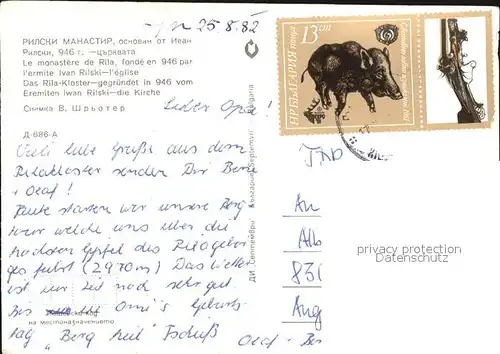 25.8.82
РИЛСКИ МАНАСТИР, основан от Иван
Рилски, 946 г. —църквата
Le monastère de Rila, fondé en 946 par
l'ermite Ivan Rilski—l'église
Das Rila-Kloster—gegründet in 946 vom
Eremiten Ivan Rilski—die Kirche
Снимка В. Шрьотер
Д-686-А
Lieber Opa!
Viele liebe Grüße aus dem
Rilakloster senden Dir
+ Olaf!
Heute starten wir unsere Berg
tour welche uns über die
höchsten Gipfel des Rilagebir
ges führt (2970m) Das Wetter
ist nur noch sehr gut.
Bis Omi's Geburts-
на местоназначението
tag "Berg heil" Tschüß
Olaf
ДИ „Септември" България
13 cm
НР БЪЛГАРИЯ поща
1982
An
Alb
831
Aug
privacy protection
Datenschutz